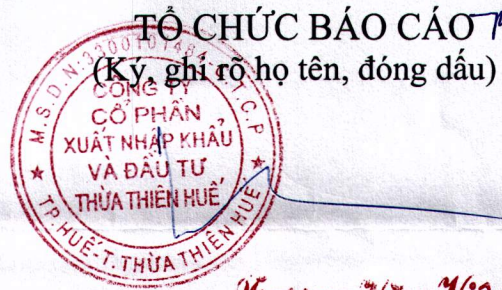 TỔ CHỨC BÁO CÁO
(Ký, ghi rõ họ tên, đóng dấu)
M.S.D.N:3300101484-C.T.C.P
CÔNG TY
CỔ PHẦN
XUẤT NHẬP KHẨU
VÀ ĐẦU TƯ
THỪA THIÊN HUẾ
TP.HUẾ-T.THỪA THIÊN HUẾ